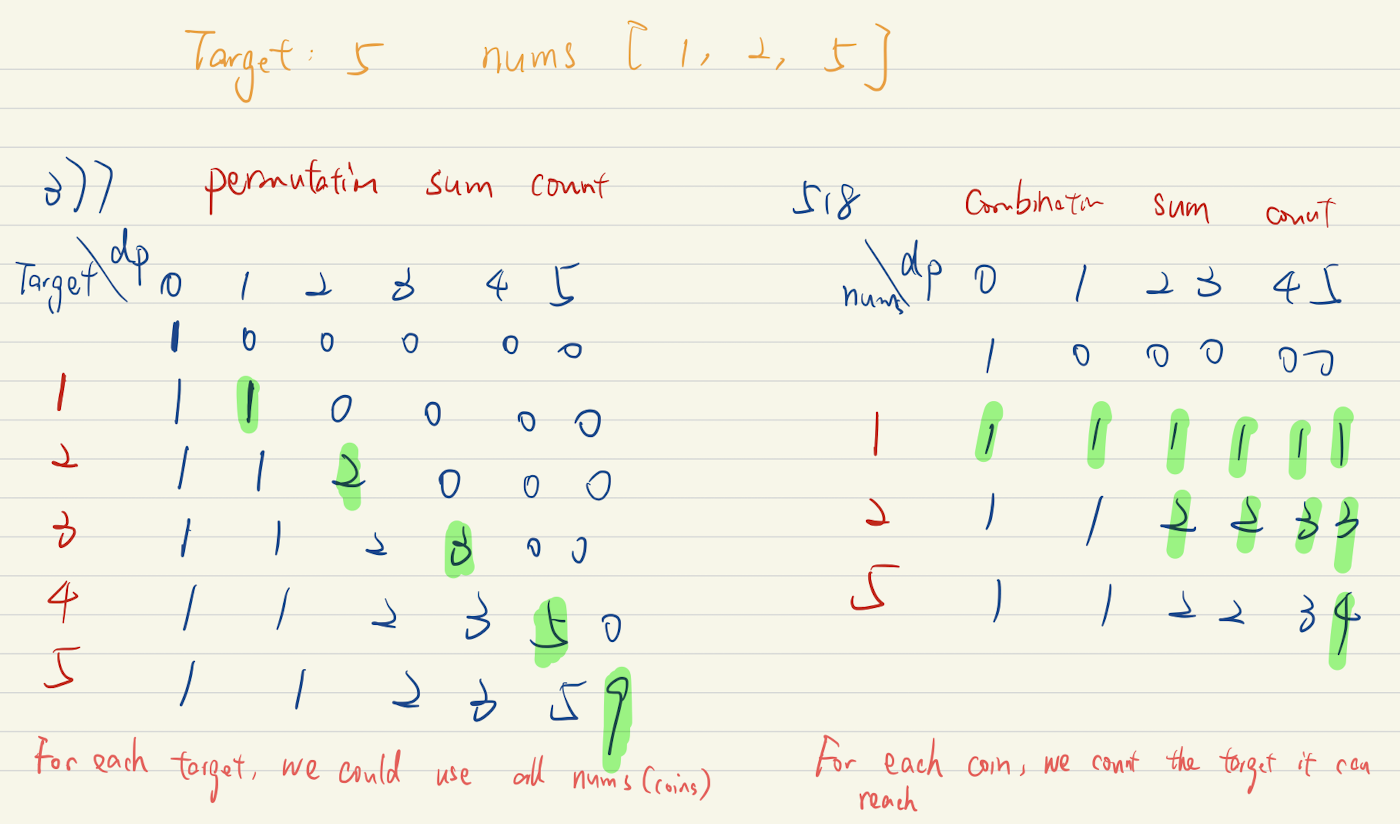 Target: 5 nums [1, 2, 5]
377 permutation sum count
Target \ dp 0 1 2 3 4 5
1 0 0 0 0 0
1 1 1 0 0 0 0
2 1 1 2 0 0 0
3 1 1 2 3 0 0
4 1 1 2 3 5 0
5 1 1 2 3 5 9
For each target, we could use all nums (coins)
518 Combination sum count
nums \ dp 0 1 2 3 4 5
1 0 0 0 0 0
1 1 1 1 1 1 1
2 1 1 2 2 3 3
5 1 1 2 2 3 4
For each coin, we count the target it can
reach